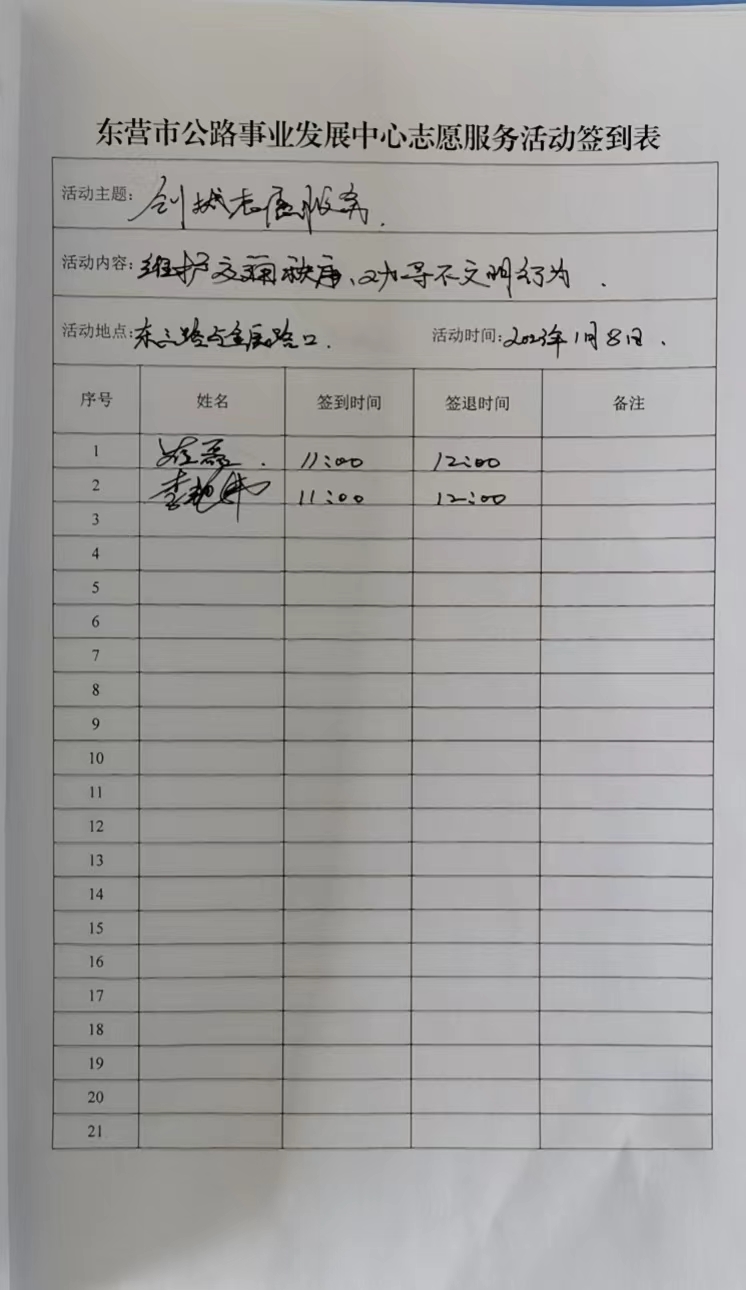 东营市公路事业发展中心志愿服务活动签到表
活动主题: 创城志愿服务.
活动内容: 维护交通秩序、劝导不文明行为.
活动地点: 东三路与 路口. 活动时间: 2023年1月8日.
序号 姓名 签到时间 签退时间 备注
1 磊. 11:00 12:00
2 李艳伟 11:00 12:00
3
4
5
6
7
8
9
10
11
12
13
14
15
16
17
18
19
20
21